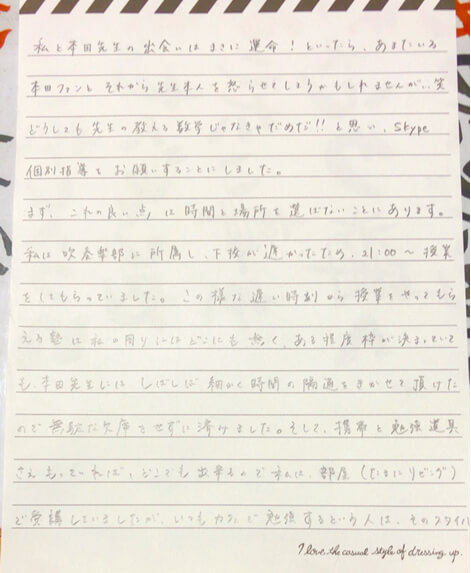 私と本田先生の出会いはまさに運命！といったら、あまたいる
本田ファンとそれから先生本人を怒らせてしまうかもしれませんが、、笑
どうしても先生の教える数学じゃなきゃだめだ!!と思い、Skype
個別指導をお願いすることにしました。
まず、これの良い点は時間と場所を選ばないことにあります。
私は吹奏楽部に所属し、下校が遅かったため、21:00〜授業
をしてもらっていました。この様な遅い時刻から授業をやってもら
える塾は私の周りにはどこにも無く、ある程度枠が決まっていて
も、本田先生にはしばしば細かく時間の融通をきかせて頂けた
ので無駄な欠席をせずに済みました。そして、携帯と勉強道具
さえもっていれば、どこでも出来るので私は、部屋（たまにリビング）
で受講していましたが、いつもカフェで勉強するという人は、そのスタイル
I love the casual style of dressing up.